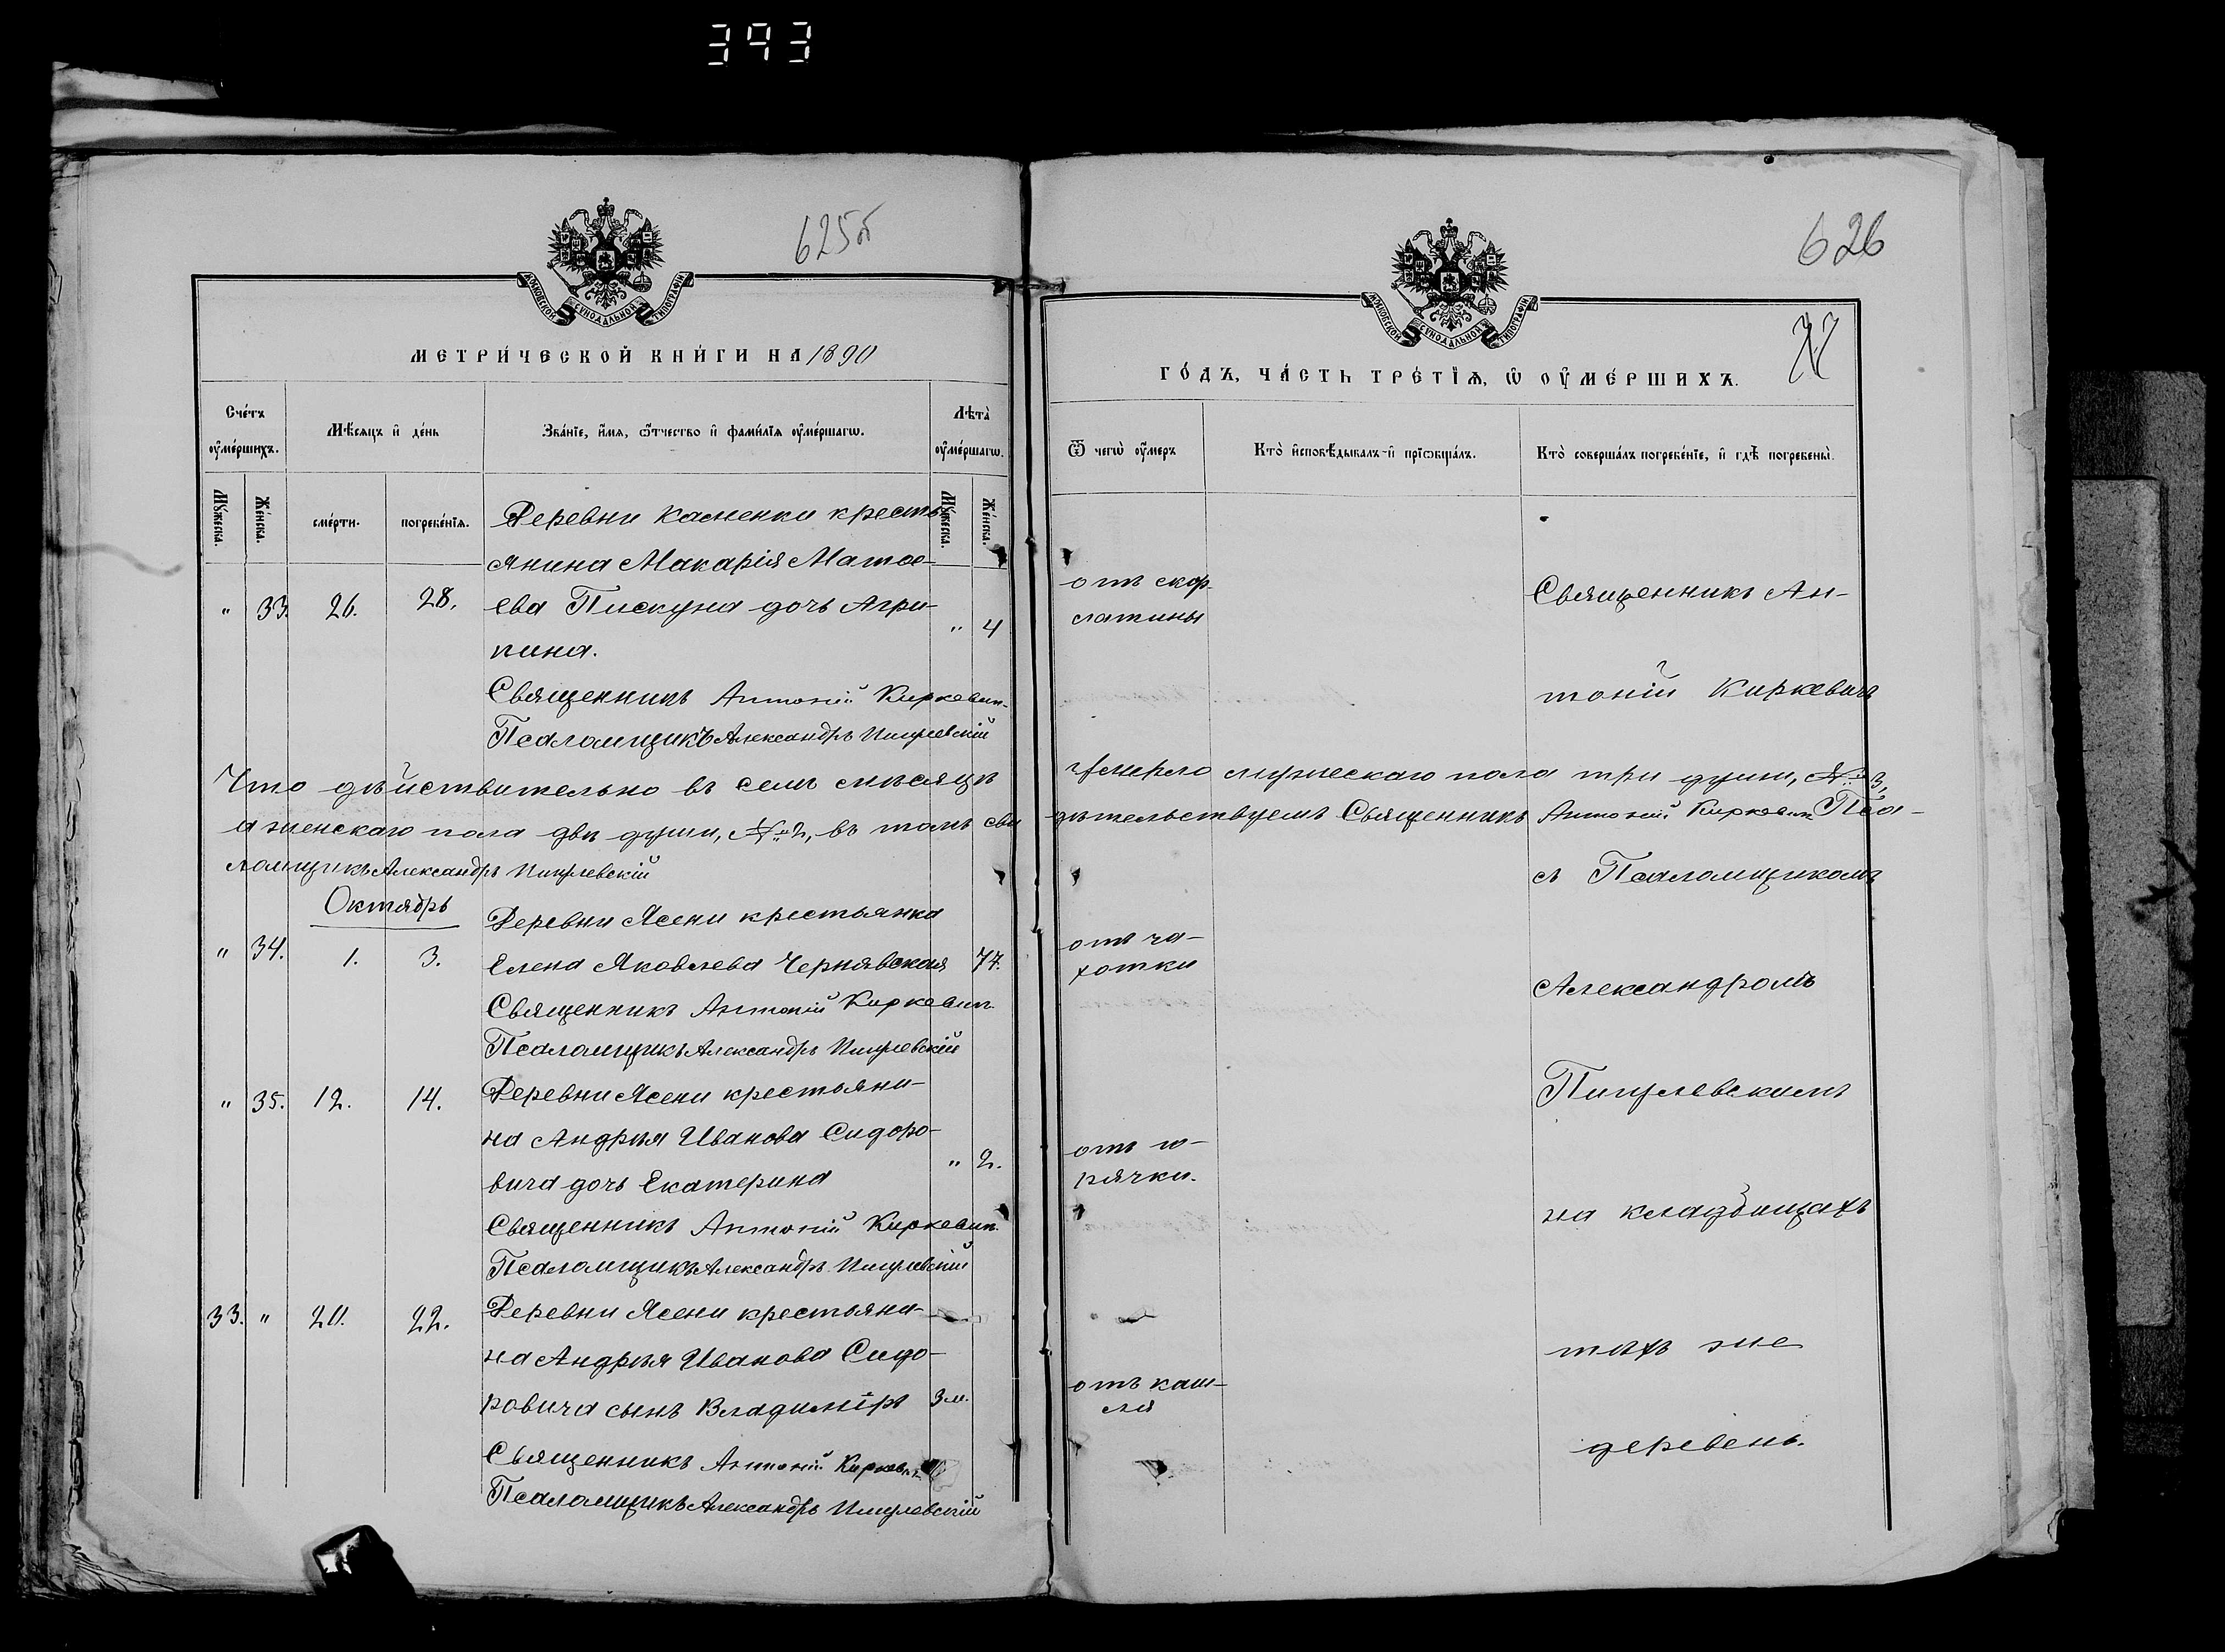 393
625об
МОСКОВСКОЙ СѴНОДАЛЬНОЙ ТИПОГРАФІИ
МЕТРИ́ЧЕСКОЙ КНИ́ГИ НА 1890
Сче́тъ оу҆ме́ршихъ.
Мѣ́сяцъ и҆ де́нь
Зва́нїе, и҆́мѧ, ѻ҆́тчество и҆ фами́лїѧ оу҆ме́ршагѡ.
Лѣта̀ оу҆ме́ршагѡ.
Мꙋ́жеска.
Же́нска.
сме́рти.
погребе́нїѧ.
Мꙋ́жеска.
Же́нска.
Деревни Каменки кресть-
янина Макарія Матѳе-
" 33. 26. 28. ева Пискуна дочь Агри- " 4
пина.
Священникъ Антоній Киркевичъ
Псаломщикъ Александръ Пигулевскій
Что дѣйствительно въ семъ мѣсяцѣ
а женскаго пола двѣ души, № 2, въ томъ сви
ломщикъ Александръ Пигулевскій
Октябрь
Деревни Ясени крестьянка
" 34. 1. 3. Елена Яковлева Чернявская 77.
Священникъ Антоній Киркевичъ
Псаломщикъ Александръ Пигулевскій
" 35. 12. 14. Деревни Ясени крестьяни-
на Андрея Иванова Сидоро- " 2.
вича дочь Екатерина
Священникъ Антоній Киркевичъ
Псаломщикъ Александръ Пигулевскій
33. " 20. 22. Деревни Ясени крестьяни-
на Андрея Иванова Сидо-
ровича сынъ Владиміръ 3 м.
Священникъ Антоній Киркевичъ
Псаломщикъ Александръ Пигулевскій
626
МОСКОВСКОЙ СѴНОДАЛЬНОЙ ТИПОГРАФІИ
ГО́ДЪ, ЧА́СТЬ ТРЕ́ТЇѦ, Ѡ҆ ОУ҆МЕ́РШИХЪ.
Ѿ чегѡ̀ оу҆́меръ
Кто̀ и҆сповѣ́дывалъ и҆ прїѡбща́лъ.
Кто̀ соверша́лъ погребе́нїе, и҆ гдѣ̀ погребены̀.
отъ скар-
латины
Священникъ Ан-
тоній Киркевичъ
умерло мужескаго пола три души, № 3,
дѣтельствуемъ Священникъ Антоній Киркевичъ Пса-
съ Псаломщикомъ
отъ ча-
хотки
Александромъ
Пигулевскимъ
отъ го-
рячки.
на кладбищахъ
тѣхъ же
отъ каш-
ля
деревень.